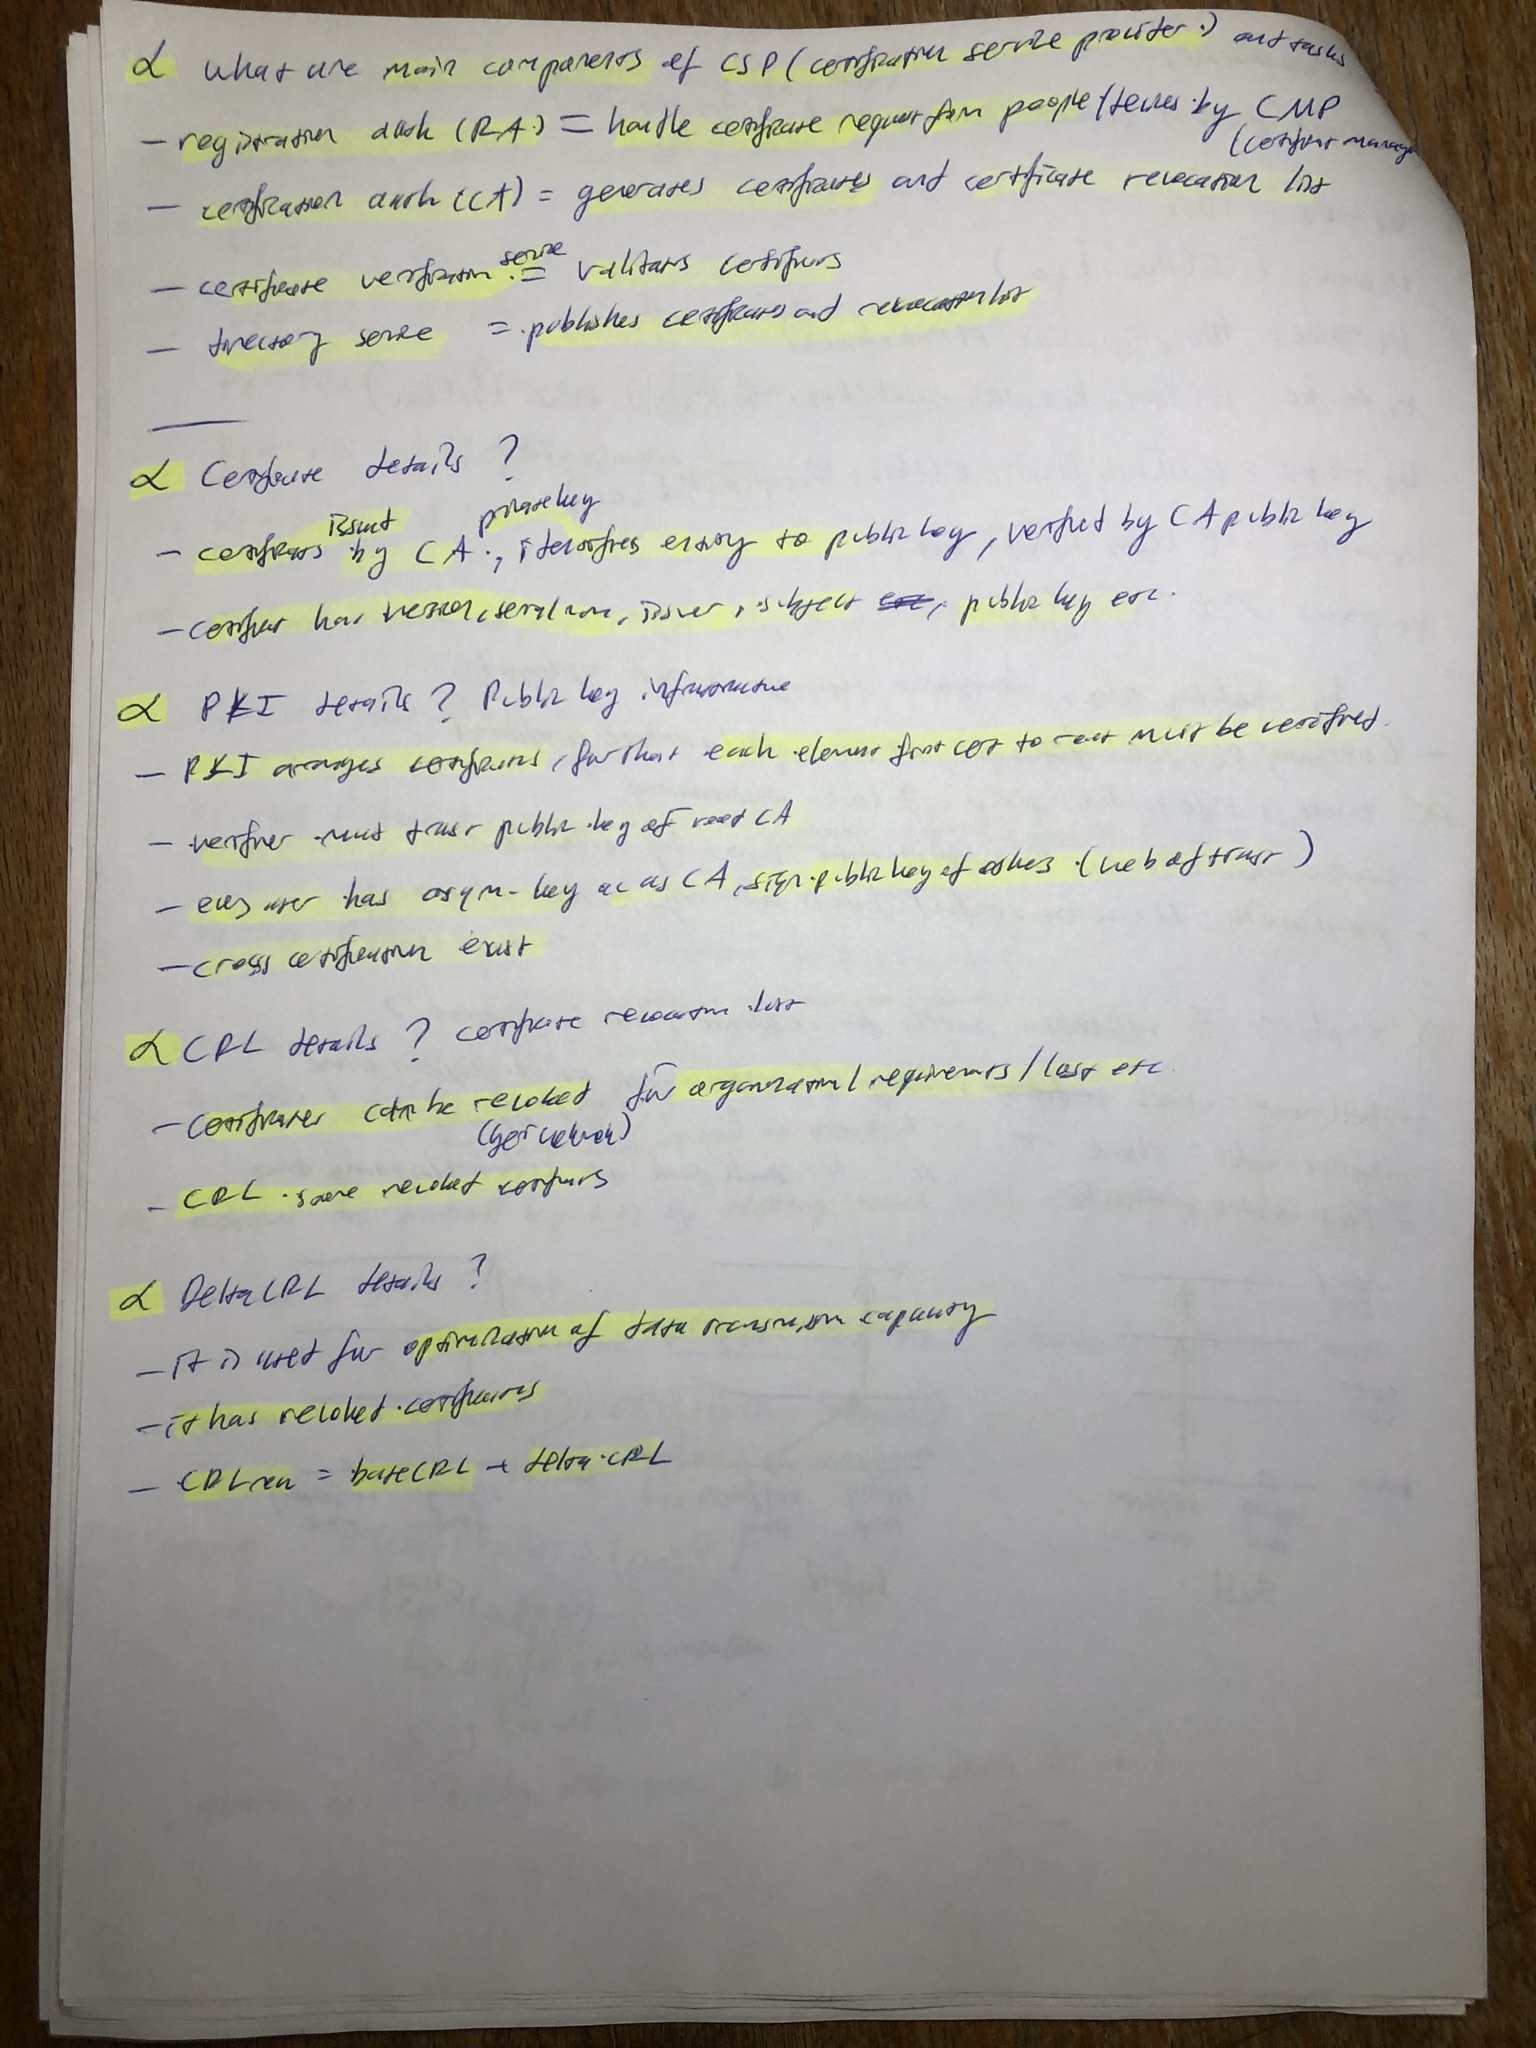 α What are main components of CSP (certification service provider.) and tasks
- registration auth (RA) = handle certificate request from people/devices by CMP
(certificat manage
- certification auth (CA) = generates certificates and certificate revocation list
- certificate verification service = validates certificates
- directory service = publishes certificates and revocation list
α Certificate details ?
- certificates issued by CA private key, identifies entity to public key, verified by CA public key
- certificat has version, serial num, issuer, subject etc, public key etc.
α PKI details ? Public key infrastructure
- PKI arranges certificates, for that each element from cert to root must be verified.
- verifier must trust public key of root CA
- every user has asym. key ac as CA, sign public key of others (web of trust)
- cross certification exist
α CRL details ? certificate revocation list
- certificates can be revoked for organization/requirements/lost etc.
- CRL save revoked certificates
α Delta CRL details ?
- it is used for optimization of data transmission capacity
- it has revoked certificates
- CRL new = base CRL + delta CRL